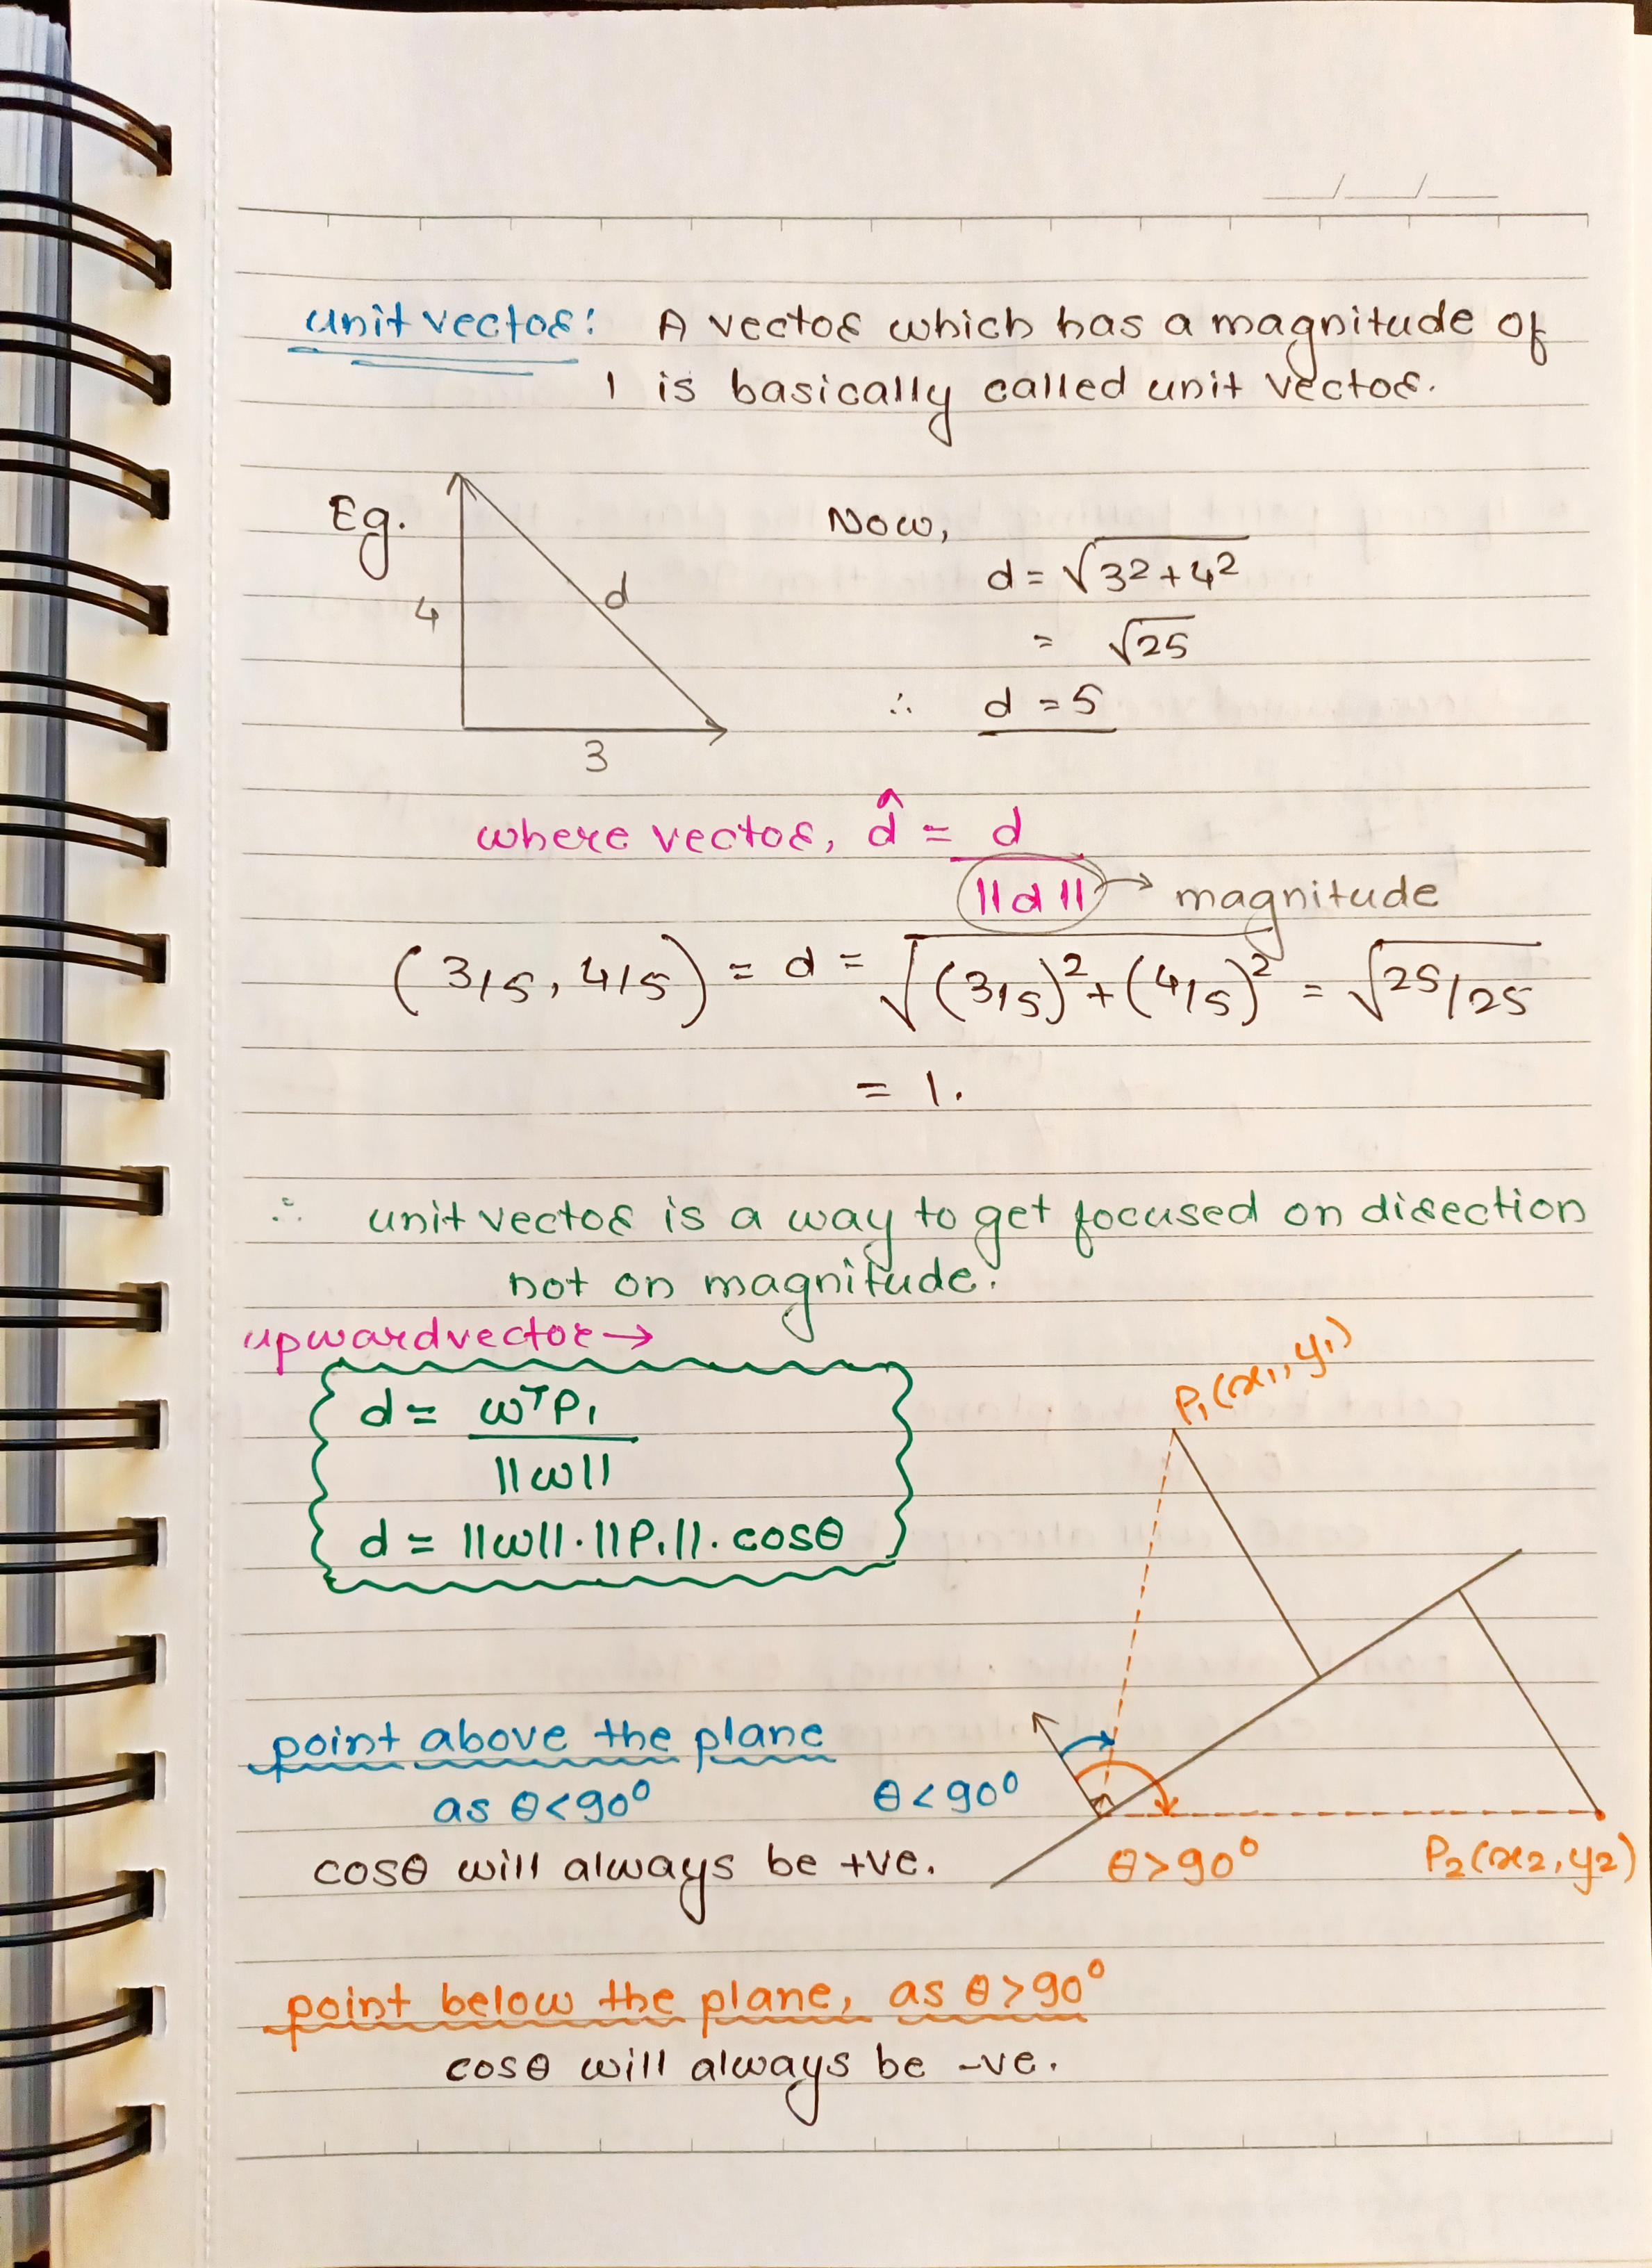 __/__/__
unit vector: A vector which has a magnitude of
1 is basically called unit vector.
Eg.
4
d
3
Now,
d = √3²+4²
= √25
∴ d = 5
where vector, d̂ = d
||d|| → magnitude
(3/5, 4/5) = d = √(3/5)²+(4/5)² = √25/25
= 1.
∴ unit vector is a way to get focused on direction
not on magnitude.
upward vector →
d = ωᵀP₁
||ω||
d = ||ω||·||P₁||·cosθ
P₁(x₁,y₁)
point above the plane
as θ<90°
θ<90°
cosθ will always be +ve.
θ>90°
P₂(x₂,y₂)
point below the plane, as θ>90°
cosθ will always be -ve.